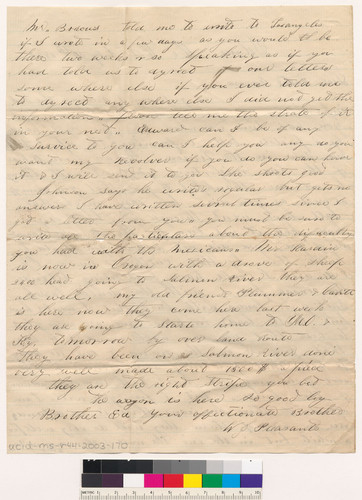 Mr. Briscus told me to write to Losangelos
if I wrote in a few days as you would be
there two weeks or so Speaking as if you
had told us to dyrect our letters
some where else if you ever told me
to dyrect any where else I did not get the
information. Please tell me the straite of it
in your next. Edward can I be if any
Survice to you can I help you any do you
want my Revolver if you do you can have
it & I will send it to you She shoots good
Johnson says he writes regular but gets no
answer I have written several times since I
got a letter from you. you must be sure to
write me the particulars about the dificulty
you had with the Mexicans. Wm
is now in Oregon with a drove of sheep
some had going to Salmon River they are
all well, my old friend Plummer &
is here now they came here last week
they are going to start home to Ill &
Ky. tomorrow by over land route
They have been on Salmon River done
very well made about 1800 $ apiece
they are the right Stripe you bet
To anyon is here So good by
Brother Ed Your affectionate Brother
W J Pleasants
ucid-ms-r44-2003-170